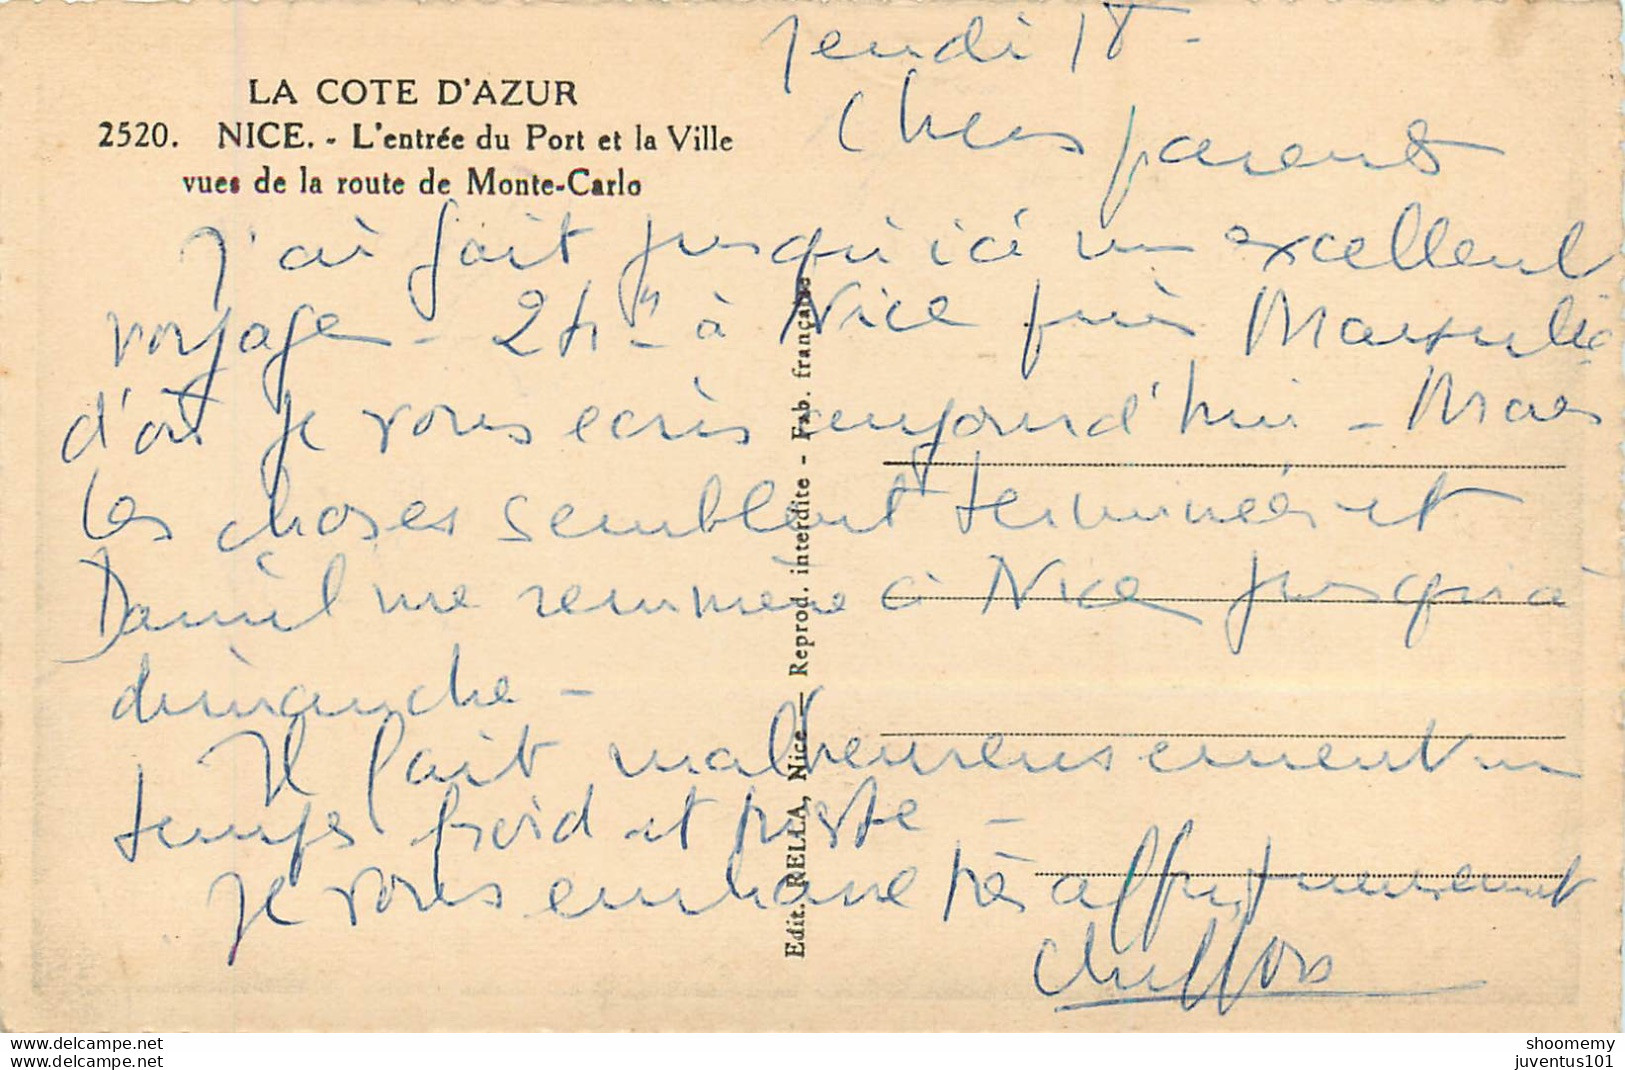 Jeudi 18 -
LA COTE D'AZUR
2520. NICE. - L'entrée du Port et la Ville
vues de la route de Monte-Carlo
Chers parents
J'ai fait jusqu'ici un excellent
voyage - 24h - à Nice puis Marseille
d'où je vous écris aujourd'hui - Mais
les choses semblent terminées et
Daniel me remmène à Nice jusqu'à
dimanche -
Il fait malheureusement un
temps froid et triste -
Je vous embrasse très affectueusement
Edit. RELLA, Nice — Reprod. interdite - Fab. française
www.delcampe.net
www.delcampe.net
shoomemy
juventus101